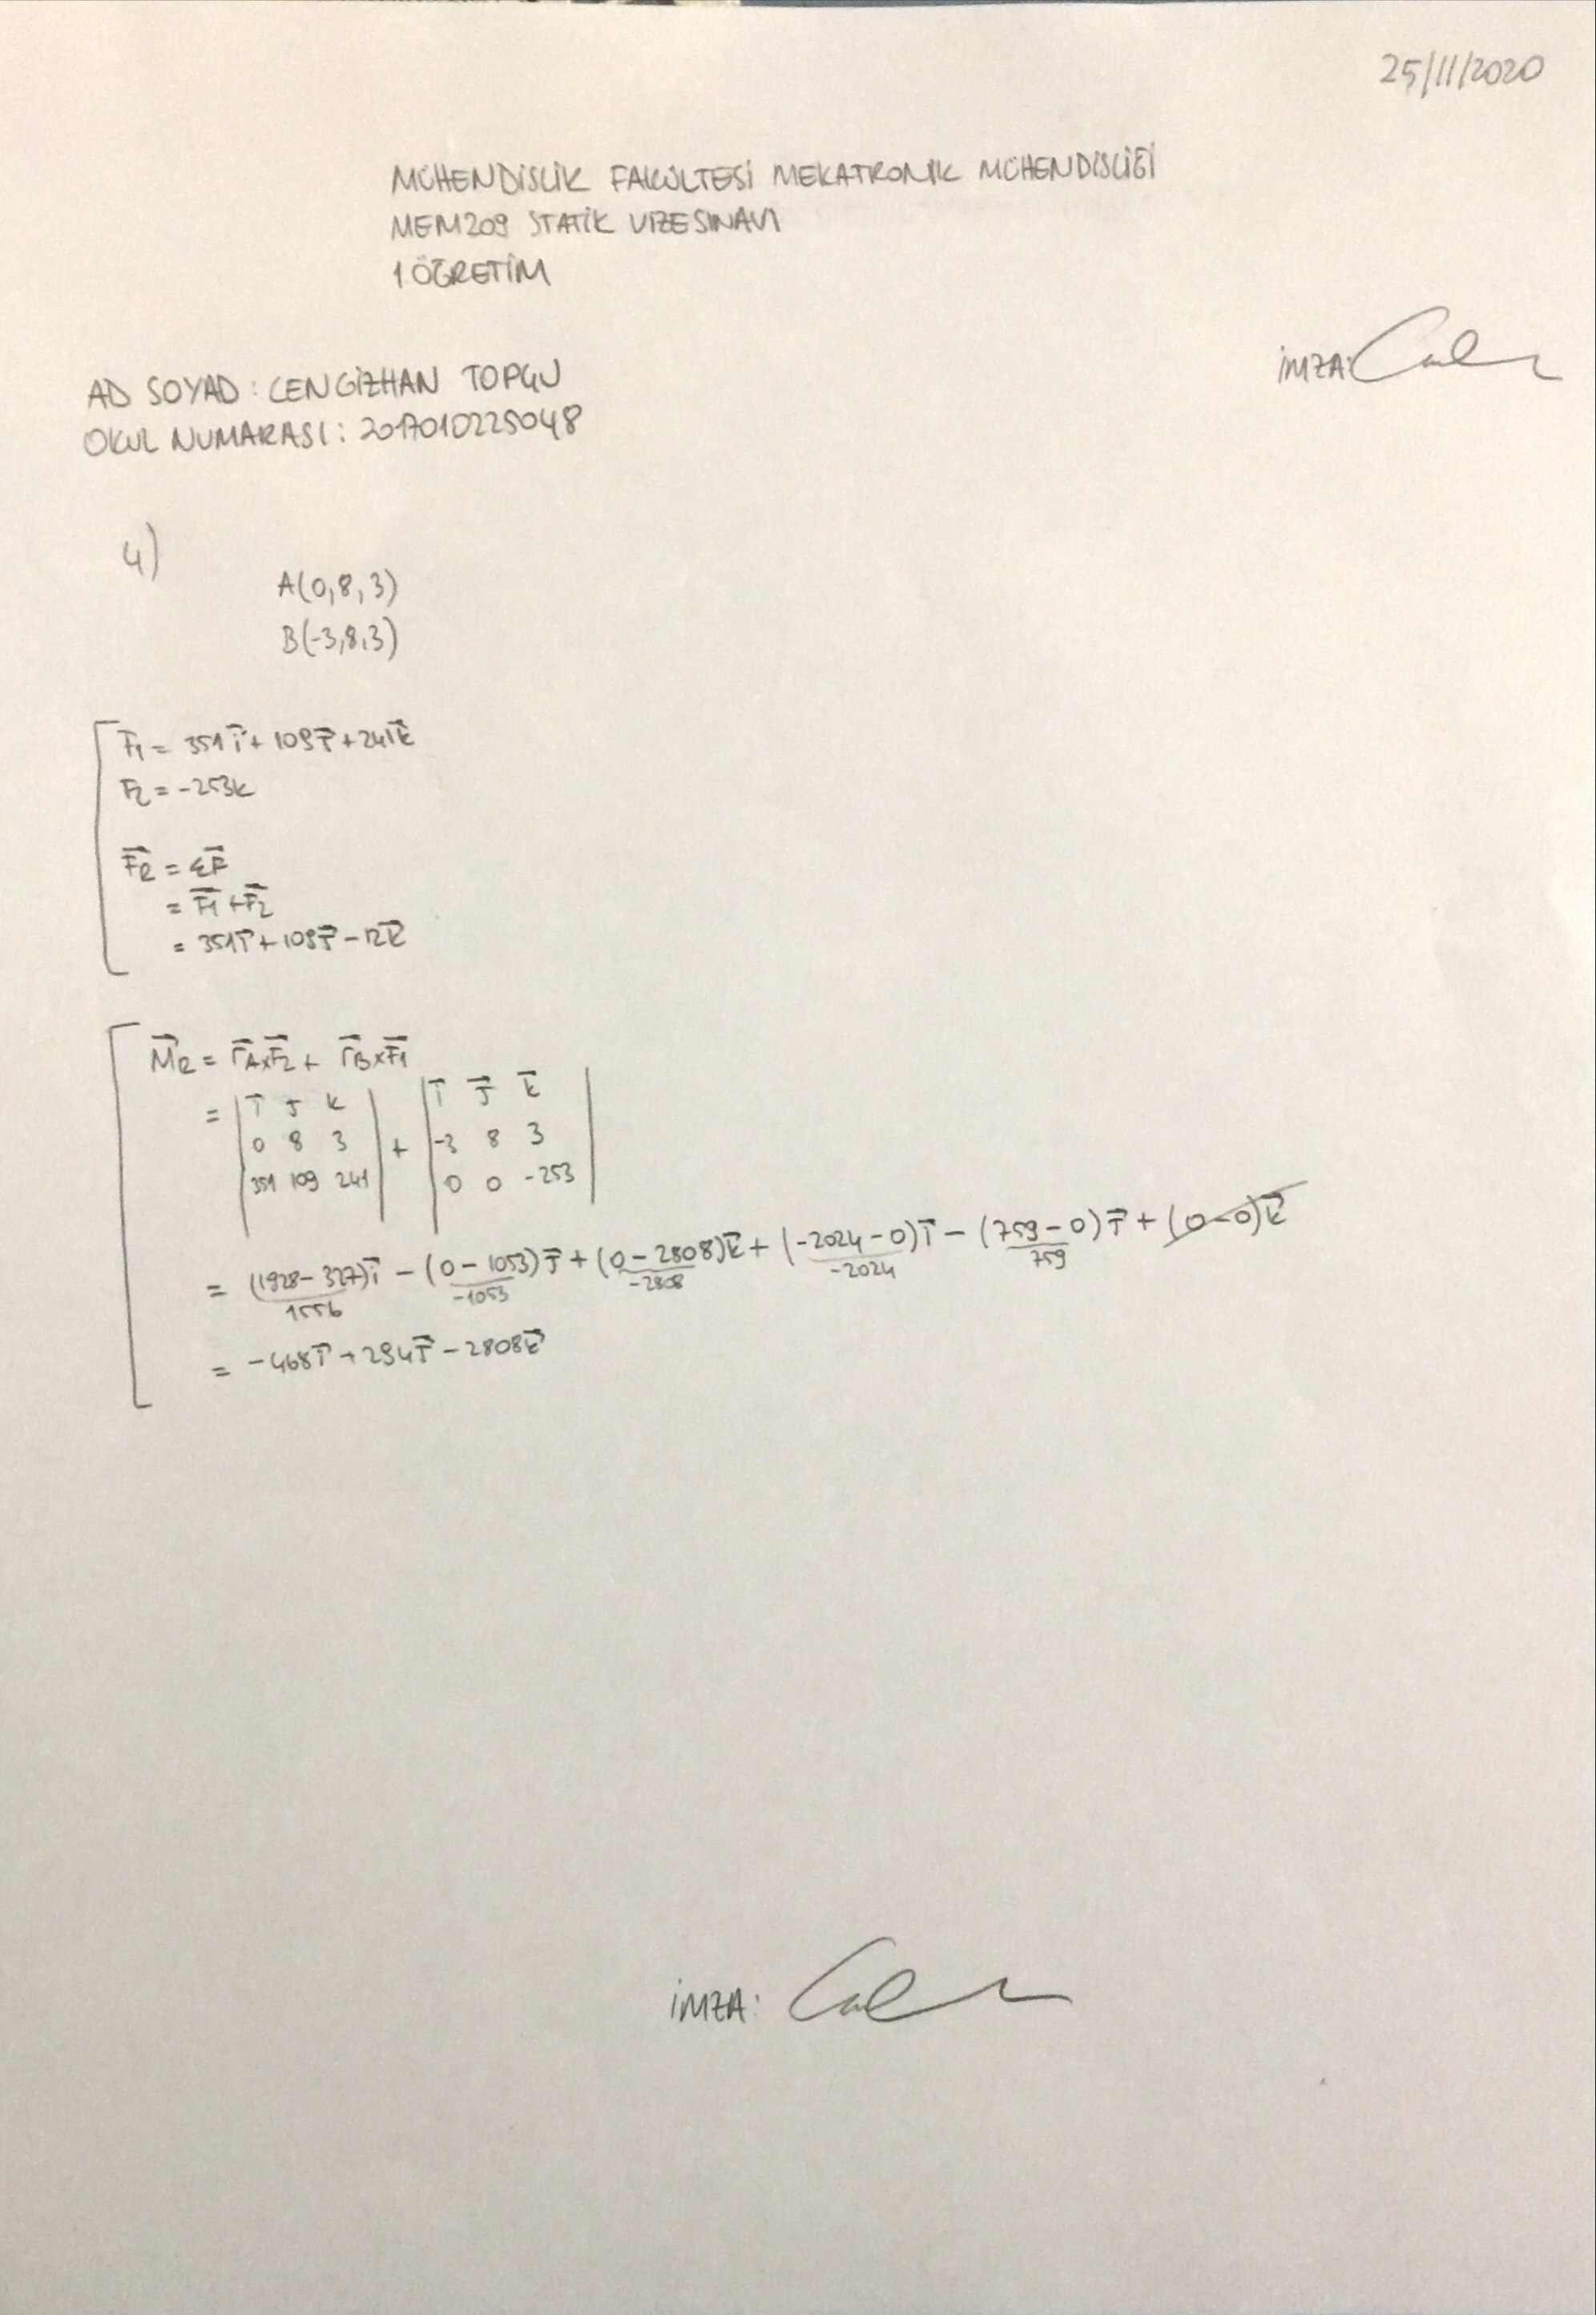 25/11/2020
MÜHENDİSLİK FAKÜLTESİ MEKATRONİK MÜHENDİSLİĞİ
MEM209 STATİK VİZE SINAVI
1 ÖĞRETİM
İMZA:
AD SOYAD : CENGİZHAN TOPÇU
OKUL NUMARASI : 2017010225048
4)
A(0,8,3)
B(-3,8,3)
F₁ = 351i⃗ + 109j⃗ + 241k⃗
F₂ = -253k
F⃗R = ΣF⃗
= F⃗₁ + F⃗₂
= 351i⃗ + 109j⃗ - 12k⃗
M⃗R = r⃗A x F⃗₂ + r⃗B x F⃗₁
= | i⃗ j k | + | i⃗ j⃗ k⃗ |
0 8 3 -3 8 3
351 109 241 0 0 -253
= (1928 - 327)i⃗ - (0 - 1053)j⃗ + (0 - 2808)k⃗ + (-2024 - 0)i⃗ - (759 - 0)j⃗ + (0 - 0)k⃗
1556 -1053 -2808 -2024 759
= -468i⃗ + 294j⃗ - 2808k⃗
İMZA: